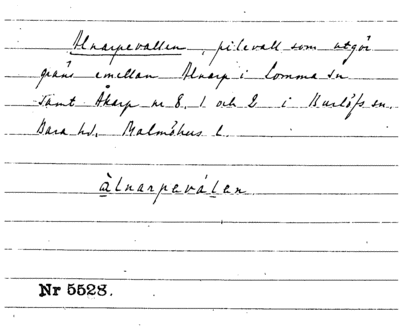 Alnarpevallen, pilevall som utgör
gräns emellan Alnarp i Lomma sn
samt Åkarp nr 8, 1 och 2 i Burlöfs sn.
Bara hd. Malmöhus l.
àlnarpeválen
Nr 5528.